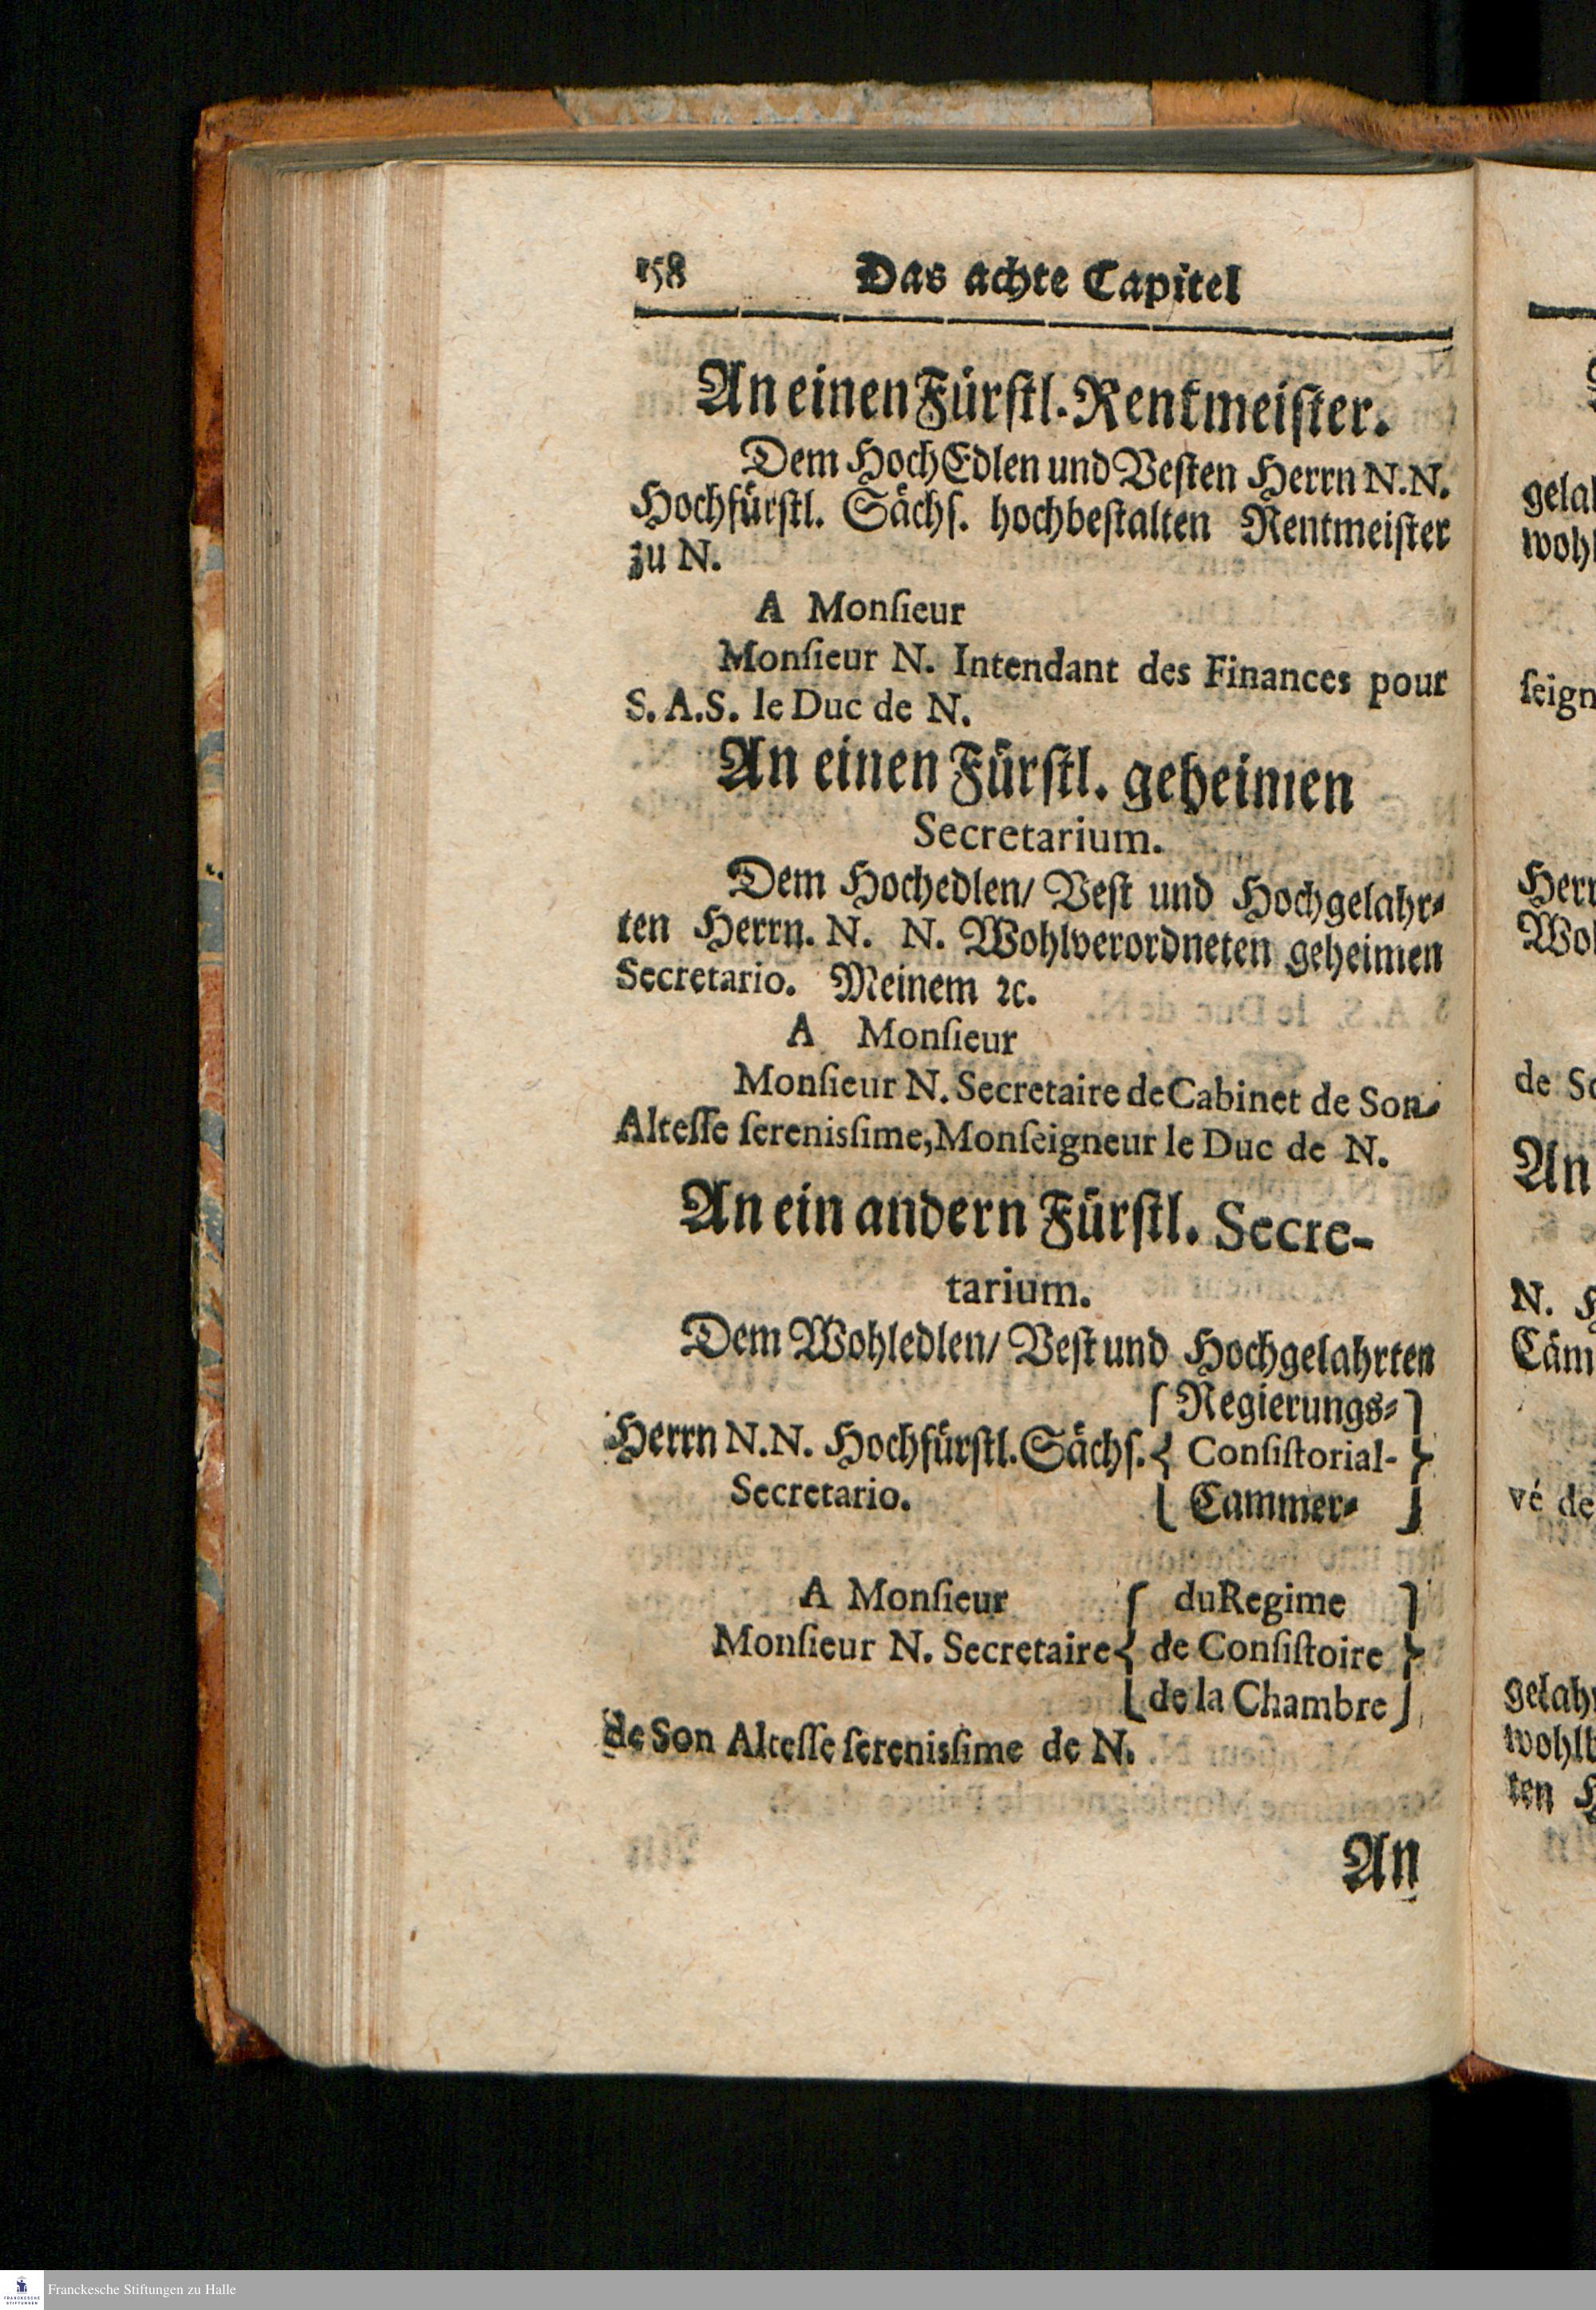 158 Das achte Capitel
An einen Fürſtl. Rentmeiſter.
Dem HochEdlen und Veſten Herrn N.N.
Hochfürſtl. Sächſ. hochbeſtalten Rentmeiſter
zu N.
A Monſieur
Monſieur N. Intendant des Finances pour
S. A.S. le Duc de N.
An einen Fürſtl. geheimen
Secretarium.
Dem Hochedlen/ Veſt und Hochgelahr⸗
ten Herrn. N. N. Wohlverordneten geheimen
Secretario. Meinem ꝛc.
A Monſieur
Monſieur N. Secretaire de Cabinet de Son
Alteſſe ſerenisſime, Monſeigneur le Duc de N.
An ein andern Fürſtl. Secre-
tarium.
Dem Wohledlen/ Veſt und Hochgelahrten
Regierungs⸗
Herrn N.N. Hochfürſtl. Sächſ. { Conſiſtorial- }
Secretario. Cammer⸗
A Monſieur du Regime
Monſieur N. Secretaire { de Conſiſtoire }
de la Chambre
de Son Alteſſe ſerenisſime de N.
An
gela
wohl
ſeign
Her
Wo
de So
An
N. H
Cäm
vé de
gelah
wohlb
ten H
FRANCKESCHE
STIFTUNGEN
Franckesche Stiftungen zu Halle